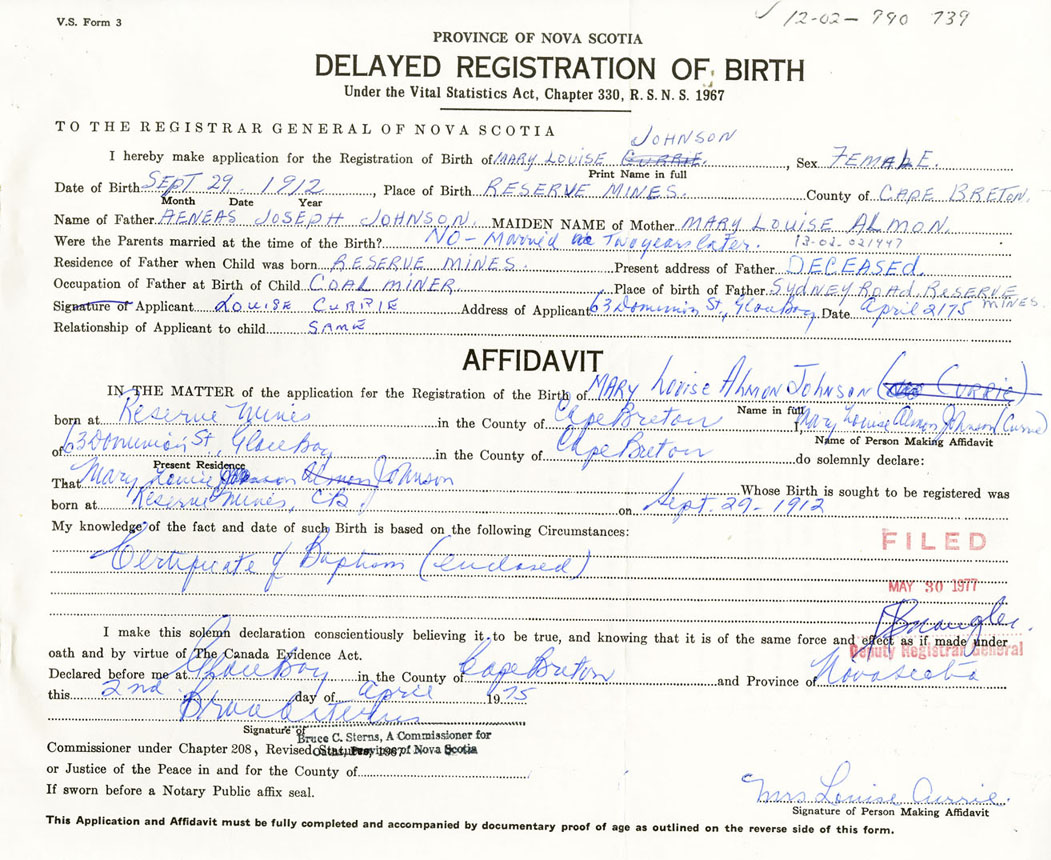 V.S. Form 3
✓ 12-02- 790 739
PROVINCE OF NOVA SCOTIA
DELAYED REGISTRATION OF BIRTH
Under the Vital Statistics Act, Chapter 330, R. S. N. S. 1967
TO THE REGISTRAR GENERAL OF NOVA SCOTIA
JOHNSON
I hereby make application for the Registration of Birth of MARY LOUISE CURRIE. , Sex FEMALE.
Print Name in full
Date of Birth SEPT 29. 1912 , Place of Birth RESERVE MINES. County of CAPE BRETON.
Month Date Year
Name of Father AENEAS JOSEPH JOHNSON. MAIDEN NAME of Mother MARY LOUISE ALMON.
Were the Parents married at the time of the Birth? NO - Married Two years later. 13-02-021447
Residence of Father when Child was born RESERVE MINES. Present address of Father DECEASED.
Occupation of Father at Birth of Child COAL MINER Place of birth of Father SYDNEY ROAD RESERVE MINES.
Signature of Applicant LOUISE CURRIE Address of Applicant 63 Dominion St., Glace Bay, Date April 2/75
Relationship of Applicant to child SAME
AFFIDAVIT
IN THE MATTER of the application for the Registration of the Birth of MARY Louise Almon Johnson (CURRIE)
Name in full
born at Reserve Mines in the County of Cape Breton I, Mary Louise Almon Johnson (Currie)
Name of Person Making Affidavit
of 63 Dominion St, Glace Bay in the County of Cape Breton do solemnly declare:
Present Residence
That Mary Louise Almon Johnson Whose Birth is sought to be registered was
born at Reserve Mines, CB. on Sept. 29 - 1912
My knowledge of the fact and date of such Birth is based on the following Circumstances:
Certificate of Baptism (enclosed)
FILED
MAY 30 1977
Deputy Registrar General
I make this solemn declaration conscientiously believing it to be true, and knowing that it is of the same force and effect as if made under
oath and by virtue of The Canada Evidence Act.
Declared before me at Glace Bay in the County of Cape Breton and Province of Nova Scotia
this 2nd day of April 1975
Signature of
Bruce C. Sterns, A Commissioner for
Commissioner under Chapter 208, Revised Statutes, 1967 of Nova Scotia
or Justice of the Peace in and for the County of
If sworn before a Notary Public affix seal.
Mrs Louise Currie.
Signature of Person Making Affidavit
This Application and Affidavit must be fully completed and accompanied by documentary proof of age as outlined on the reverse side of this form.